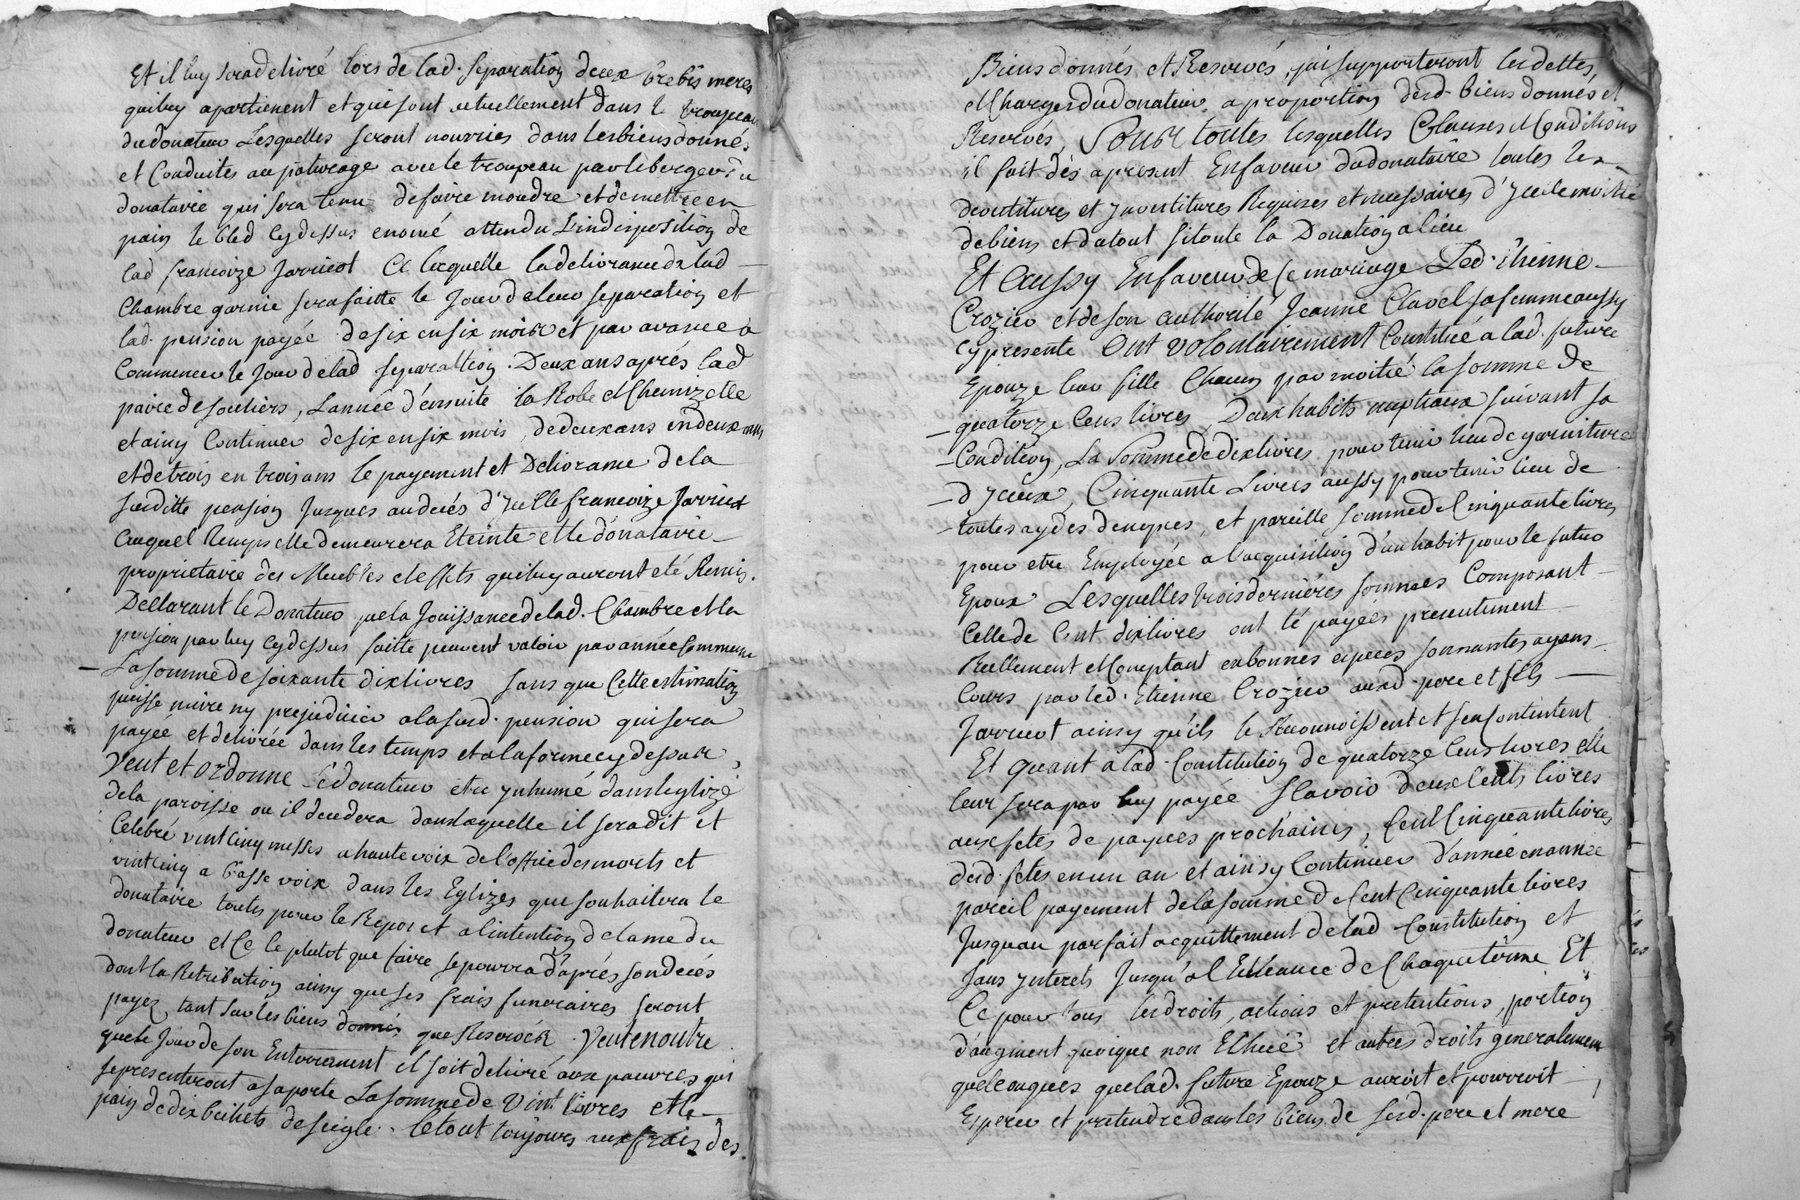 Et il luy sera delivré lors de lad. separation deux brebis meres
qui luy apartienent et qui sont actuellement dans le troupeau
du donateur Lesquelles seront nourries dans les biens donnés
et Conduites au paturage avec le troupeau par le berger du
donataire qui sera tenu de faire moudre et de mettre en
pain le bled cy dessus enoncé attendu L'indisposition de
lad francoize Jarricot a lacquelle la delivrance de lad
Chambre garnie sera faitte le Jour de leur separation et
lad. pension payée de six en six mois et par avance a
Commencer le Jour de lad separation. Deux ans aprés lad
paire de souliers, L'année d'ensuite la Robe et Chemizette
et ainsy Continuer de six en six mois, de deux ans en deux ans
et de trois en trois ans le payement et Delivrance de la
susditte pension Jusques au decés d'ycelle francoize Jarricot
auquel tems elle demeurera Eteinte et le donataire
proprietaire des Meubles et effets qui luy auront eté Remis.
Declarant le Donateur que la Jouissance de lad. Chambre et la
pension par luy cy dessus faitte peuvent valoir par année Commune
La somme de soixante dix livres sans que Cette estimation
puisse nuire ny prejudicier a la susd. pension qui sera
payée et delivrée dans les temps et a la forme cy dessus,
Veut et ordonne le donateur etre ynhumé dans l'eglize
de la paroisse ou il decedera dans laquelle il sera dit et
Celebré vint cinq messes a haute voix de l'office des morts et
vint cinq a basse voix dans les Eglizes que souhaitera le
donataire toutes pour le Repos et a l'intention de l'ame du
donateur et Ce le plutot que faire se pourra d'aprés son decés
dont la Retribution ainsy que ses frais funeraires seront
payez tant sur les biens donnés que Reservés. Veut en outre
que le Jour de son Enterrement il soit delivré aux pauvres qui
se presenteront a sa porte La somme de Vint livres et le
pain de dix bichets de seigle. le tout toujours aux frais des
Biens donnés et Reservés, qui supporteront les dettes,
et Charges du donateur a proportion desd. biens donnés et
Reservés, Sous toutes lesquelles Clauses et Conditions
il fait dés a present En faveur du donataire toutes les
devetitures et ynvetitures Requises et necessaires d'ycelle moitié
de biens et du tout si toute la Donation a lieu
Et Aussy En faveur de Ce mariage Led. Etienne
Crozier et de son authorité Jeanne Clavel sa femme aussy
cy presente Ont volontairement Constitué a lad. future
Epouze leur fille Chacun par moitié la somme de
quatorze Cens livres, Deux habits nuptiaux suivant sa
Condition, La Somme de dix livres pour tenir lieu de garniture
d'yceux, Cinquante Livres aussy pour tenir lieu de
toutes aydes de nopces, et pareille somme de Cinquante livres
pour etre Employée a l'acquisition d'un habit pour le futur
Epoux Lesquelles trois dernieres sommes Composant
Celle de Cent dix livres ont té payées presentement
Reellement et Comptant en bonnes especes sonnantes ayans
Cours par led. Etienne Crozier auxd. pere et fils
Jarricot ainsy qu'ils le Reconnoissent et s'en Contentent
Et quant a lad. Constitution de quatorze Cens livres elle
leur sera par luy payée Scavoir deux Cents livres
aux fetes de paques prochaines, Cent Cinquante livres
desd. fetes en un an et ainsy Continuer d'année en année
pareil payement de la somme de Cent Cinquante livres
Jusqu'au parfait acquittement de lad Constitution et
sans ynterets Jusqu'a l'Echeance de Chaque terme Et
Ce pour tous les droits, actions et pretentions, portion
d'augment quoique non Echue et autres droits generalement
quelconques que lad. future Epouze auroit et pourroit
Esperer et pretendre dans les biens de sesd. pere et mere